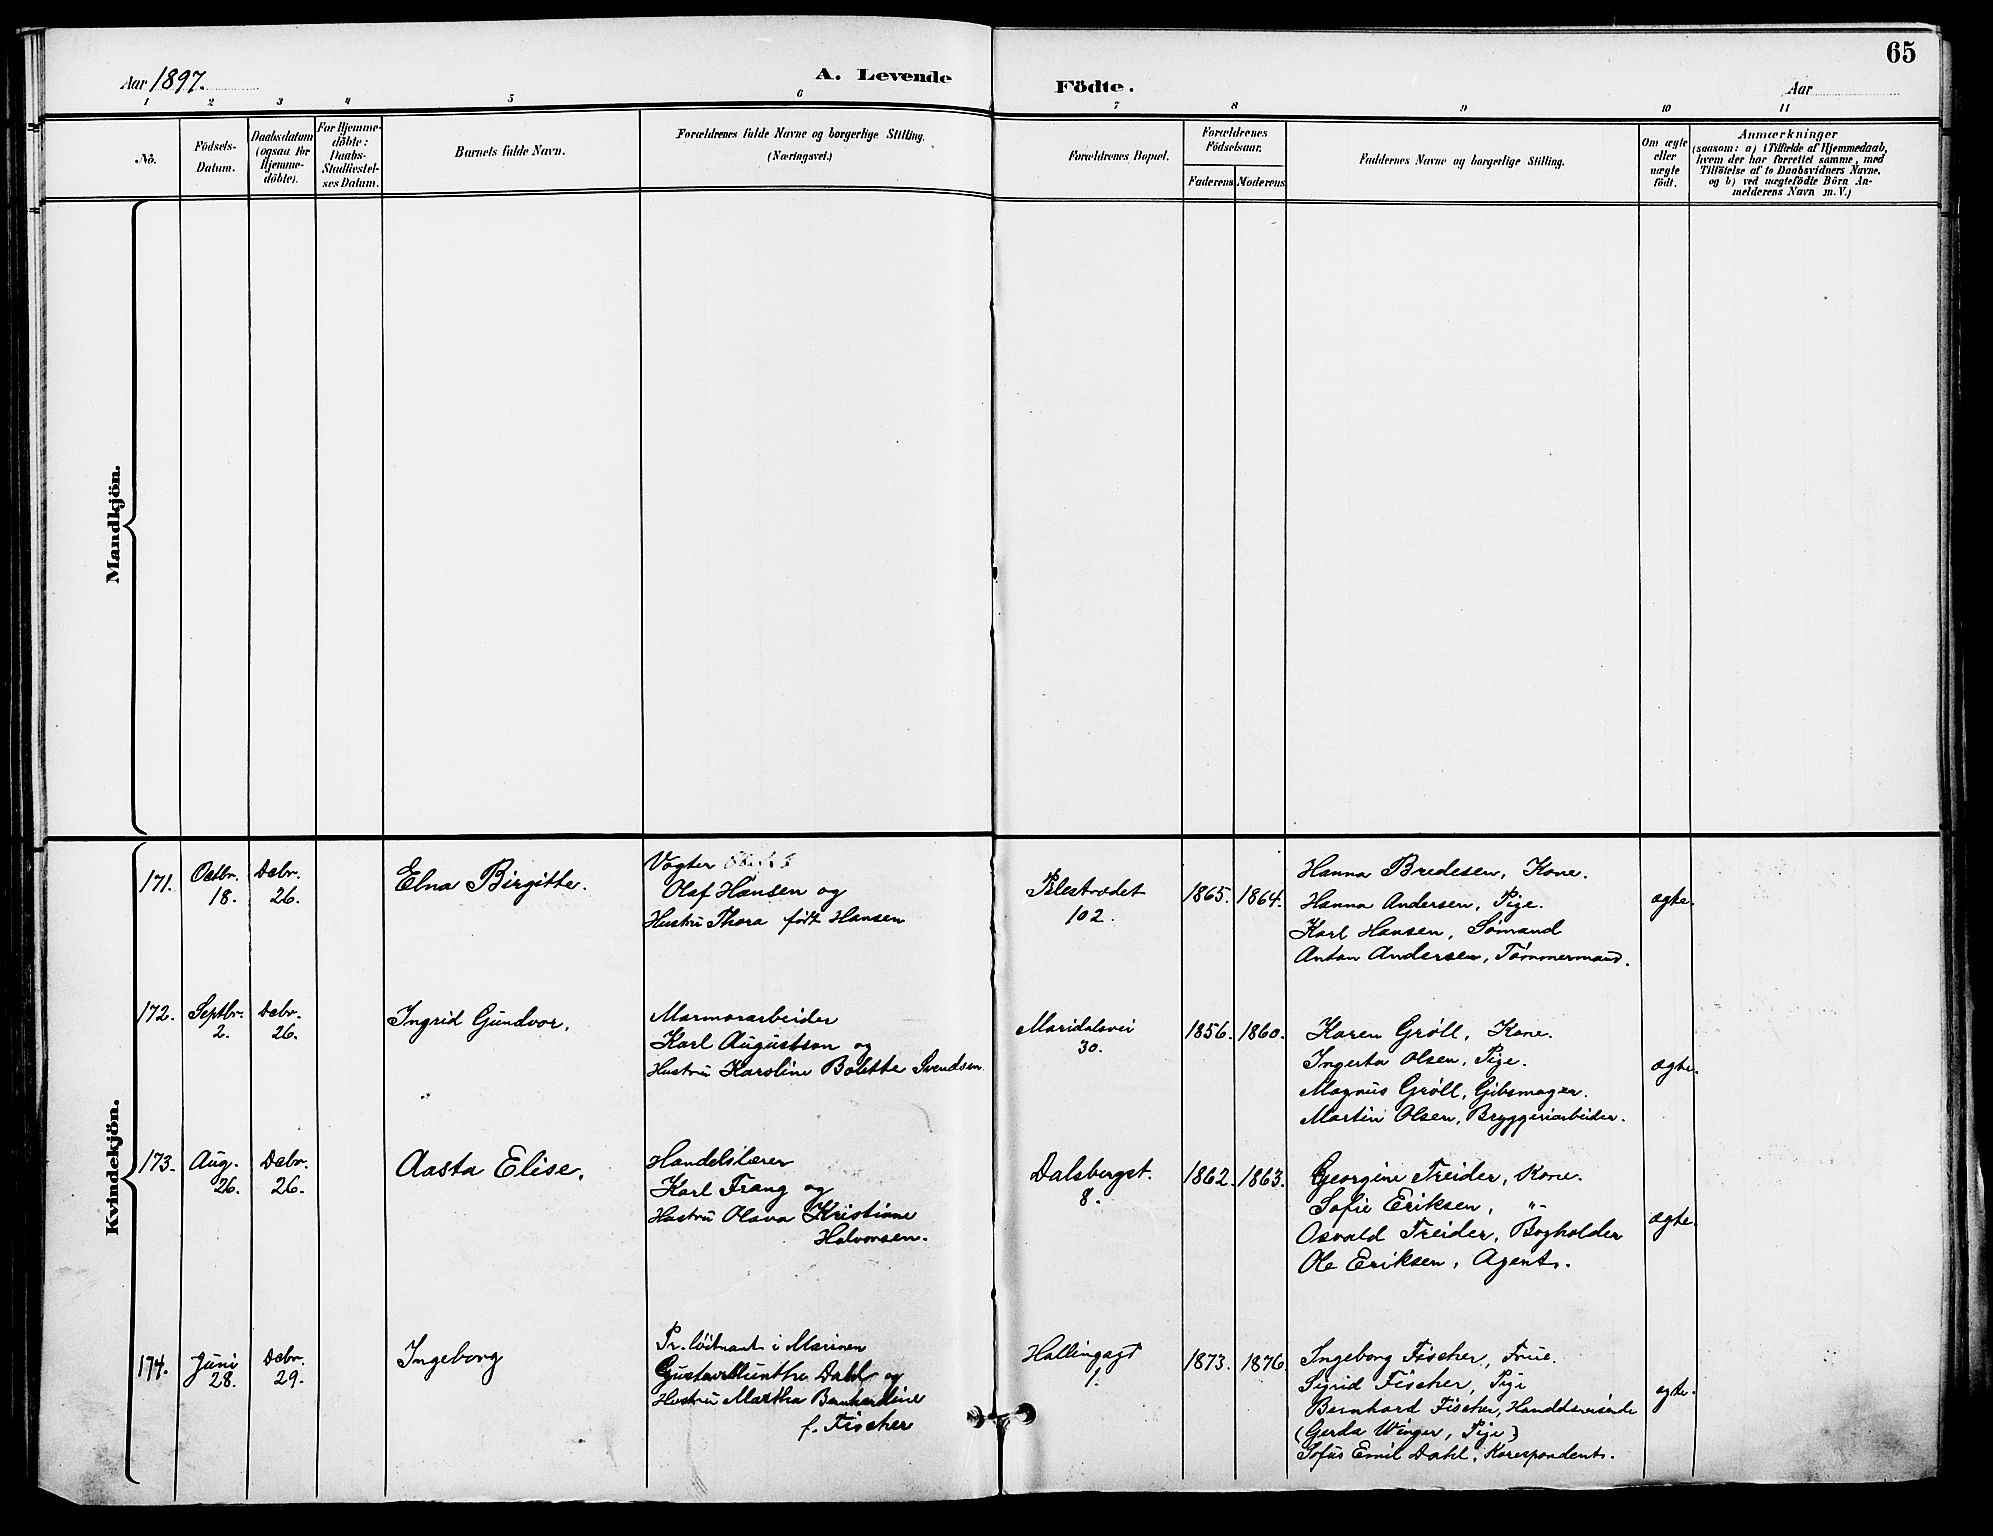 65
Aar 1897.
A. Levende Födte.
Aar
1 2 3 4 5 6 7 8 9 10 11
No.
Födsels-
Datum.
Daabsdatum
(ogsaa for
Hjemme-
döbte).
For Hjemme-
döbte:
Daabs-
Stadfæstel-
ses Datum.
Barnets fulde Navn.
Forældrenes fulde Navne og borgerlige Stilling.
(Næringsvei.)
Forældrenes Bopæl.
Forældrenes
Födselsaar.
Faderens Moderens
Faddernes Navne og borgerlige Stilling.
Om ægte
eller
uægte
født.
Anmærkninger
(saasom: a) i Tilfælde af Hjemmedaab,
hvem der har forrettet samme, med
Tilföielse af to Daabsvidners Navne,
og b) ved uægtefödte Börn An-
melderens Navn m. V.)
Mandkjön.
Kvindekjön.
171.
Octbr.
18.
Decbr.
26.
Elna Birgitte.
Vogter
Olaf Hansen og
Hustru Thora født Hansen
Pilestrædet
102.
1865. 1864.
Hanna Bredesen, Kone.
Hanna Andersen, Pige.
Karl Hansen, Sømand
Anton Andersen, Tømmermand.
ægte.
172.
Septbr.
2.
Decbr.
26.
Ingrid Gundvor.
Marmorarbeider
Karl Augustson og
Hustru Karoline Bolette Svendsen
Maridalsvei
30.
1856. 1860.
Karen Grøll, Kone.
Ingerta Olsen, Pige.
Magnus Grøll, Gibsmager.
Martin Olsen, Bryggeriarbeider.
ægte.
173.
Aug.
26.
Decbr.
26.
Aasta Elise.
Handelslærer
Karl Frang og
Hustru Olava Kristiane
Halvorsen.
Dalsbergst.
8.
1862. 1863.
Georgine Treider, Kone.
Sofie Eriksen, "
Osvald Treider, Bogholder
Ole Eriksen, Agent.
ægte.
174.
Juni
28.
Decbr.
29.
Ingeborg
Pr. løitnant i Marinen
Gustav Munthe Dahl og
Hustru Martha Bernhardine
f. Fischer
Hallingsgt
1.
1873. 1876
Ingeborg Fischer, Frue.
Sigrid Fischer, Pige
Bernhard Fischer, Handelsreisende
(Gerda Winger, Pige)
Sofus Emil Dahl, Korespondent.
ægte.